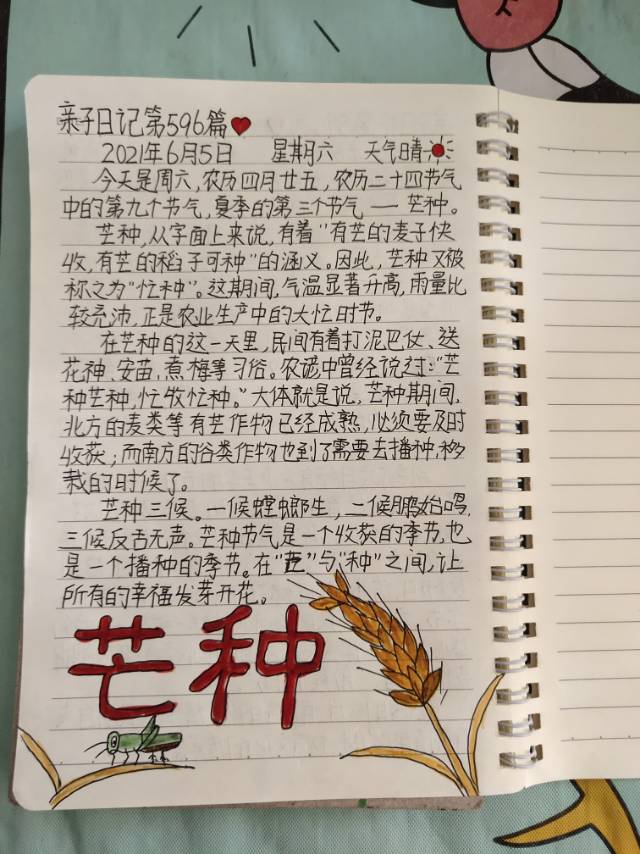 亲子日记第596篇
2021年6月5日 星期六 天气晴
今天是周六,农历四月廿五,农历二十四节气
中的第九个节气,夏季的第三个节气——芒种。
芒种,从字面上来说,有着"有芒的麦子快
收,有芒的稻子可种"的涵义。因此,芒种又被
称之为"忙种"。这期间,气温显著升高,雨量比
较充沛,正是农业生产中的大忙时节。
在芒种的这一天里,民间有着打泥巴仗、送
花神、安苗、煮梅等习俗。农谚中曾经说过:"芒
种芒种,忙收忙种。"大体就是说,芒种期间,
北方的麦类等有芒作物已经成熟,必须要及时
收获;而南方的谷类作物也到了需要去播种,移
栽的时候了。
芒种三候。一候螳螂生,二候鹏始鸣,
三候反舌无声。芒种节气是一个收获的季节,也
是一个播种的季节。在"芒"与"种"之间,让
所有的幸福发芽开花。
芒种